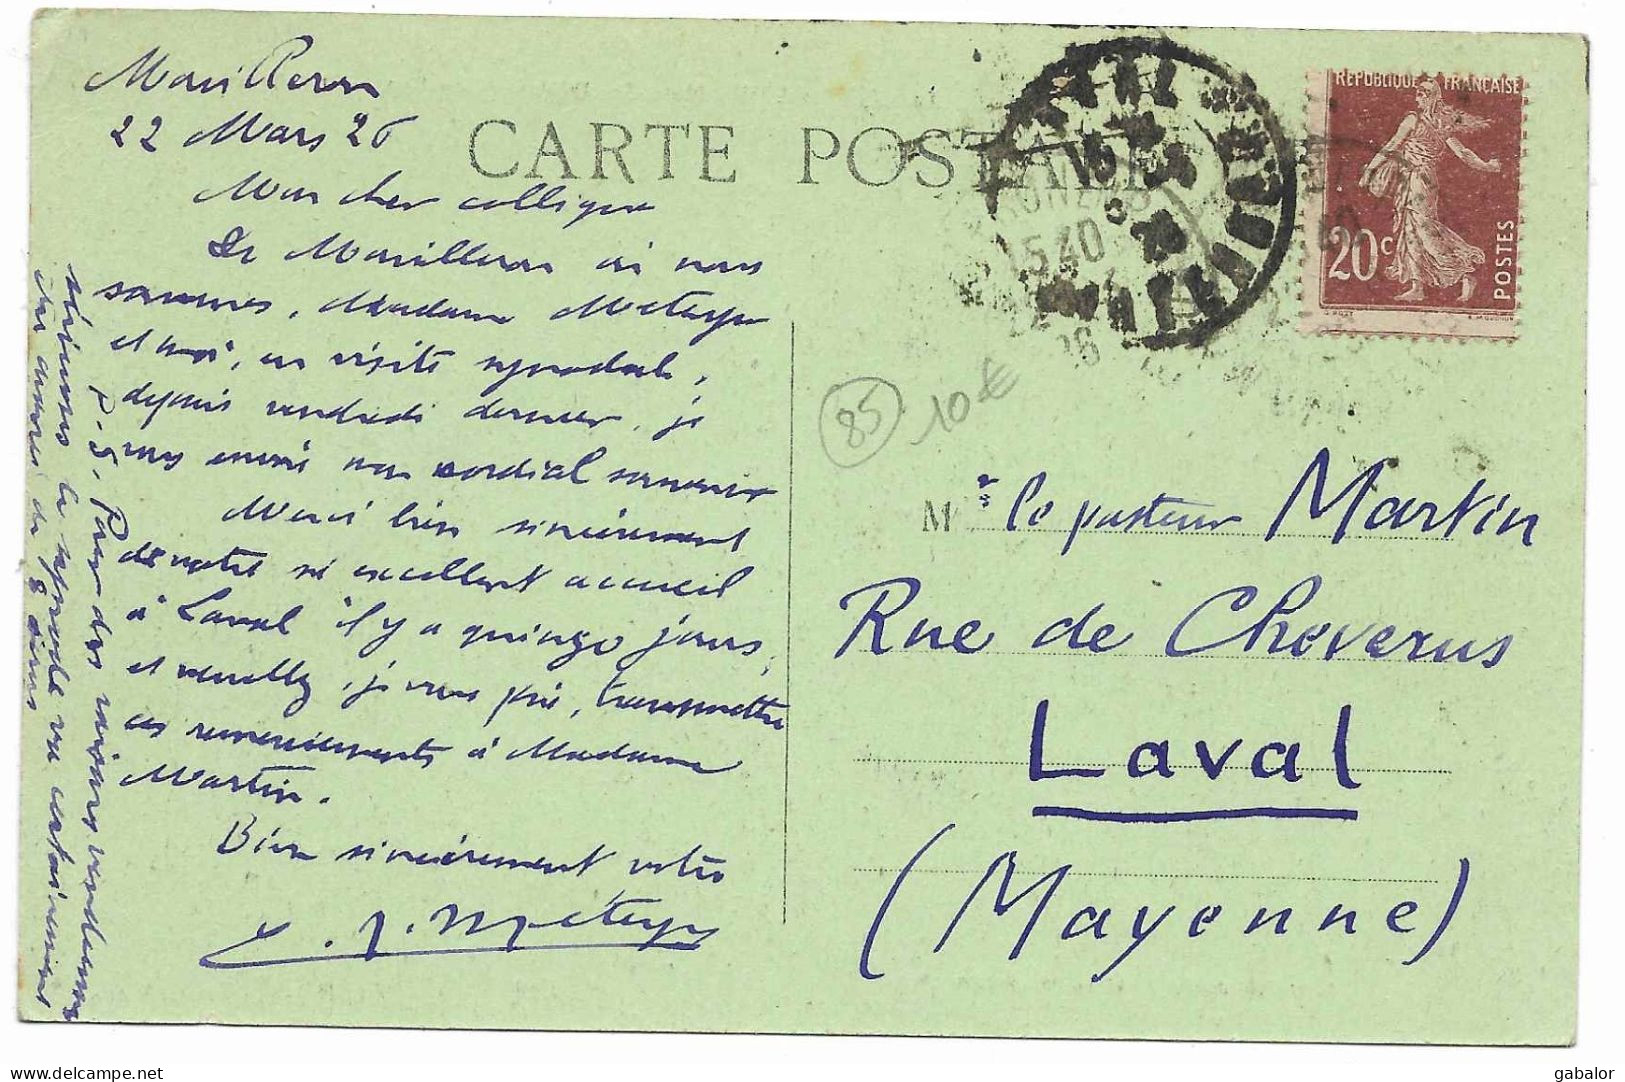 Mouilleron
22 Mars 26
CARTE POSTALE
Mon cher collègue
De Mouilleron où nous
sommes, Madame
et moi, en visite synodale,
depuis vendredi dernier, je
vous envoie mon cordial souvenir
Merci bien sincèrement
de votre si excellent accueil
à Laval il y a quinze jours,
et veuillez, je vous prie, transmettre
ces remerciements à Madame
Martin.
Bien sincèrement votre
P.S. Pour des raisons
la synode
certainement
REPUBLIQUE FRANÇAISE
20c
POSTES
15 40
22
26
85
10€
Mr le pasteur Martin
Rue de Cheverus
Laval
(Mayenne)
gabalor